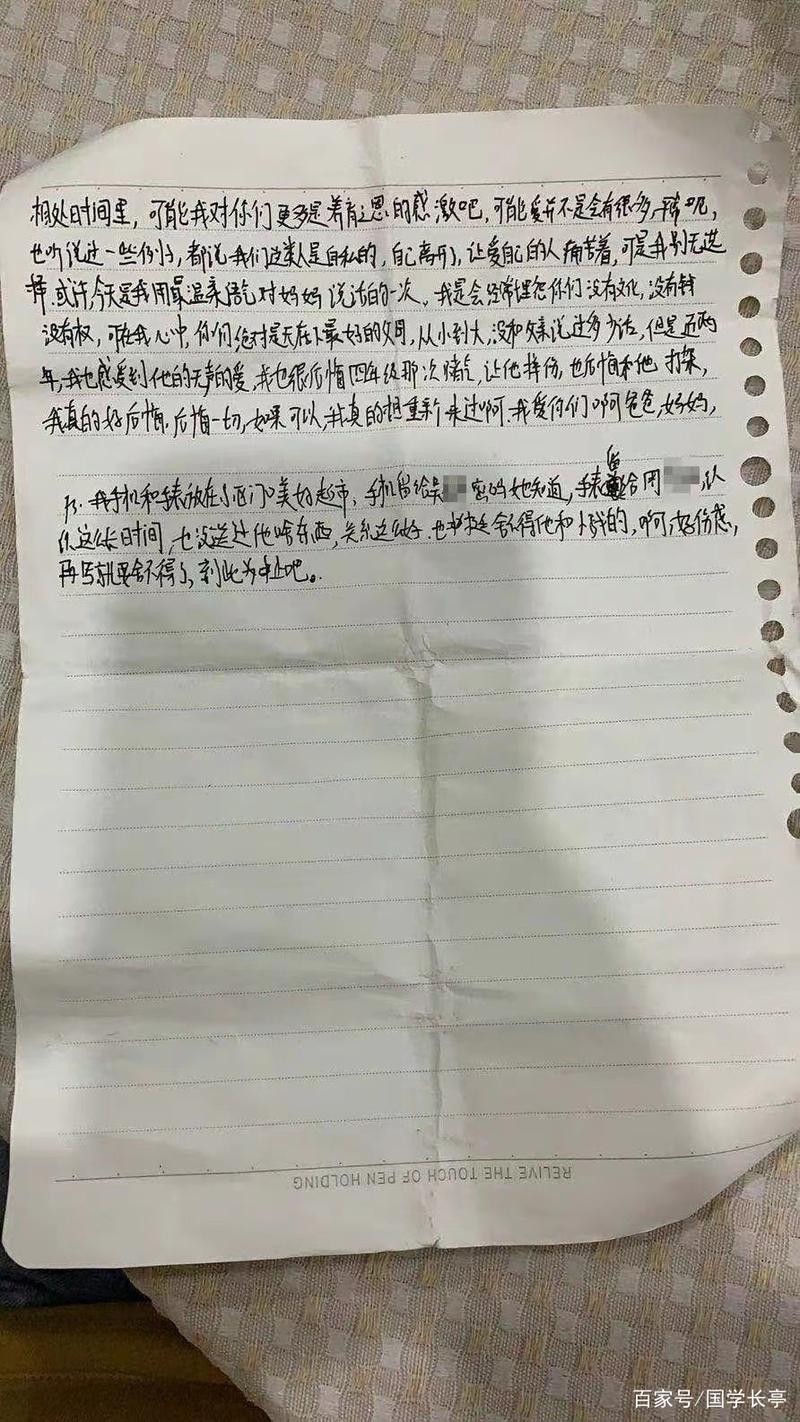 相处时间里，可能我对你们更多是养育之恩的感激吧，可能爱并不是会有很多，呢，
也听说过一些例子，都说我们这类人是自私的，自己离开了，让爱自己的人痛苦着，可是我别无选
择。或许今天是我用最温柔语气对妈妈说话的一次，我是会经常埋怨你们没有文化，没有钱
没有权，可在我心中，你们绝对是天在下最好的父母，从小到大，没和父亲说过多少话，但是近两
年，我也感受到他的无声的爱，我也很后悔四年级那次赌气，让他摔伤，也后悔和他打架，
我真的好后悔，后悔一切，如果可以，我真的想重新来过啊，我爱你们啊爸爸，妈妈，
Ps：我手机和手表放在小区门口美好超市，手机留给吴 密码她知道，手表留给周 ，认
识这么长时间，也没送过他啥东西，关系这么好，也舍不得他和的，啊，好伤感，
再写就要舍不得了，到此为止吧。
RELIVE THE TOUCH OF PEN HOLDING
百家号/国学长亭